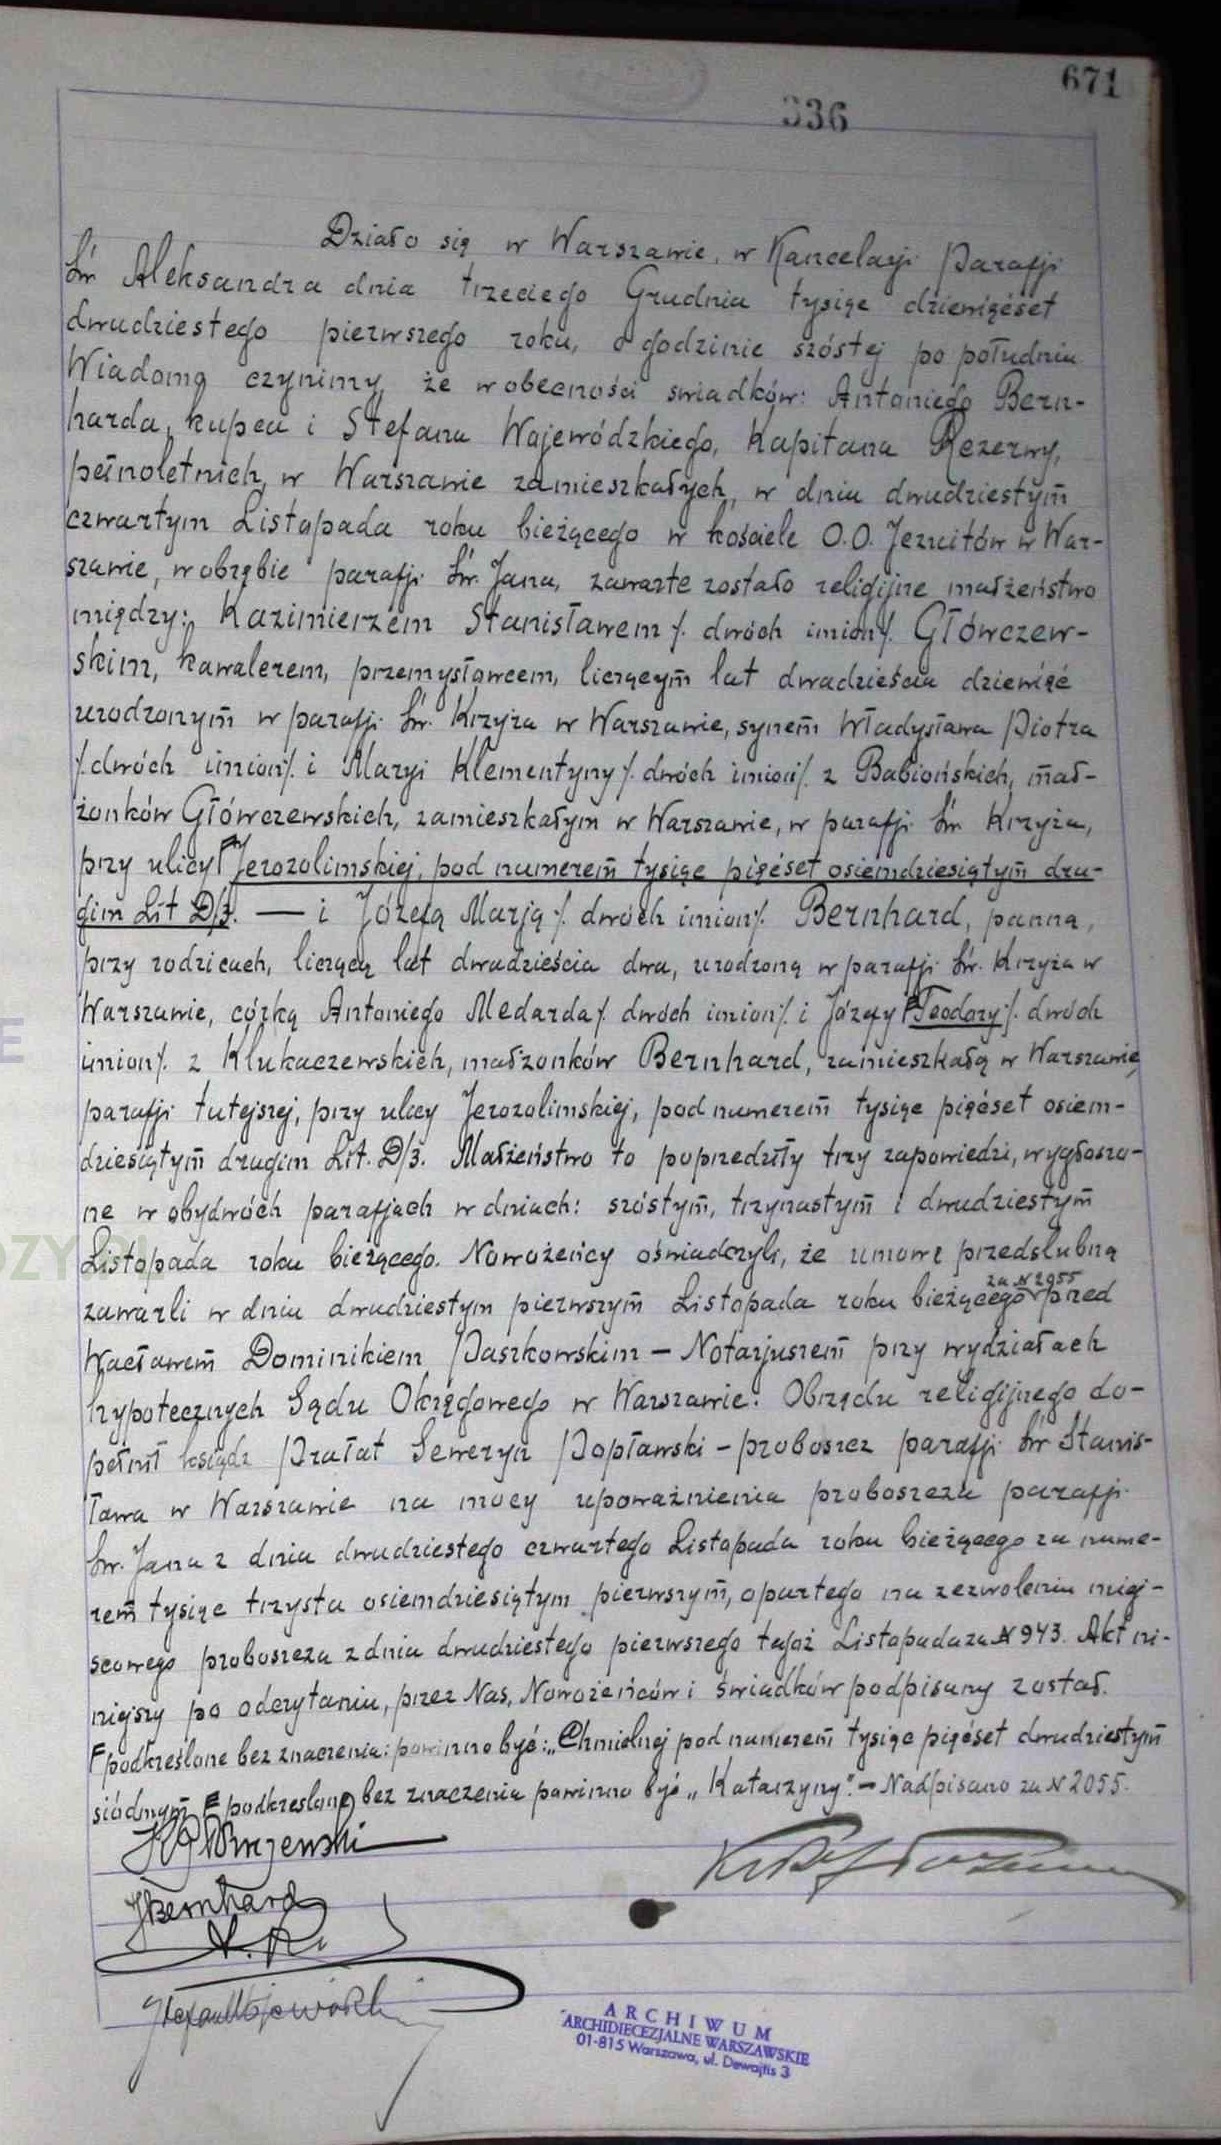 671
336
Działo się w Warszawie, w Kancelaryi Parafji
Św. Aleksandra dnia trzeciego Grudnia tysiąc dziewięćset
dwudziestego pierwszego roku, o godzinie szóstej po południu
Wiadomo czynimy, że w obecności swiadków: Antoniego Bern-
harda, kupca i Stefana Wojewódzkiego, Kapitana Rezerwy,
pełnoletnich, w Warszawie zamieszkałych, w dniu dwudziestym
czwartym Listopada roku bieżącego w kościele O.O. Jezuitów w War-
szawie, w obrębie parafji Św. Jana, zawarte zostało religijne małżeństwo
między: Kazimierzem Stanisławem /. dwóch imion/. Główczew-
skim, kawalerem, przemysłowcem, liczącym lat dwadzieścia dziewięć
urodzonym w parafji Św. Krzyża w Warszawie, synem Władysława Piotra
/. dwóch imion/. i Maryi Klementyny /. dwóch imion/. z Babiońskich, mał-
żonków Główczewskich, zamieszkałym w Warszawie, w parafji Św. Krzyża,
przy ulicy Jerozolimskiej, pod numerem tysiąc pięćset osiemdziesiątym dru-
gim Lit D/3. — i Józefą Marją /. dwóch imion/. Bernhard, panną,
przy rodzicach, liczącą lat dwadzieścia dwa, urodzoną w parafji Św. Krzyża w
Warszawie, córką Antoniego Medarda /. dwóch imion/. i Józefy Teodory /. dwóch
imion/. z Klukaczewskich, małżonków Bernhard, zamieszkałą w Warszawie,
parafji tutejszej, przy ulicy Jerozolimskiej, pod numerem tysiąc pięćset osiem-
dziesiątym drugim Lit. D/3. Małżeństwo to poprzedziły trzy zapowiedzi, wygłoszo-
ne w obydwóch parafjach w dniach: szóstym, trzynastym i dwudziestym
Listopada roku bieżącego. Nowożeńcy oświadczyli, że umowę przedślubną
za N 2055
zawarli w dniu dwudziestym pierwszym Listopada roku bieżącego przed
Wacławem Dominikiem Paszkowskim – Notarjuszem przy wydziałach
hypotecznych Sądu Okręgowego w Warszawie. Obrzędu religijnego do-
pełnił ksiądz Prałat Seweryn Popławski – proboszcz parafji Św Stanis-
ława w Warszawie na mocy upoważnienia proboszcza parafji
Św. Jana z dnia dwudziestego czwartego Listopada roku bieżącego za nume-
rem tysiąc trzysta osiemdziesiątym pierwszym, opartego na zezwoleniu miej-
scowego proboszcza z dnia dwudziestego pierwszego tegoż Listopada za N 943. Akt ni-
niejszy po odczytaniu, przez Nas, Nowożeńców i świadków podpisany został.
F podkreślone bez znaczenia: powinno być: „Chmielnej pod numerem tysiąc pięćset dwudziestym
siódmym F podkreślone bez znaczenia powinno być „Katarzyny". – Nadpisano za N 2055.
KGłówczewski
JBernhard
Stefan Wojewódzki
ARCHIWUM
ARCHIDIECEZJALNE WARSZAWSKIE
01-815 Warszawa, ul. Dewajtis 3